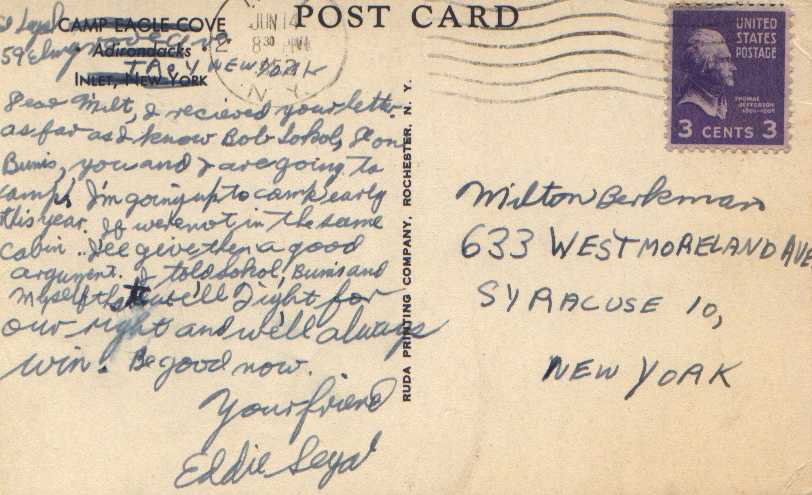 POST CARD
CAMP EAGLE COVE
Adirondacks
INLET, NEW YORK
59
TROY NEW YORK
JUN 14
8 30
N. Y.
UNITED
STATES
POSTAGE
THOMAS
JEFFERSON
3 CENTS 3
Dear Milt, I recieved your letter.
as far as I know Bob Sokol,
Bunis, you and I are going to
camp. I'm going up to camp early
this year. If were not in the same
cabin.. I'll give them a good
argument. I told Sokol, Bunis and
Myself that we'll fight for
our right and we'll always
win. Be good now.
Your friend
Eddie Segal
RUDA PRINTING COMPANY, ROCHESTER, N. Y.
Milton Berkman
633 WESTMORELAND AVE
SYRACUSE 10,
NEW YORK